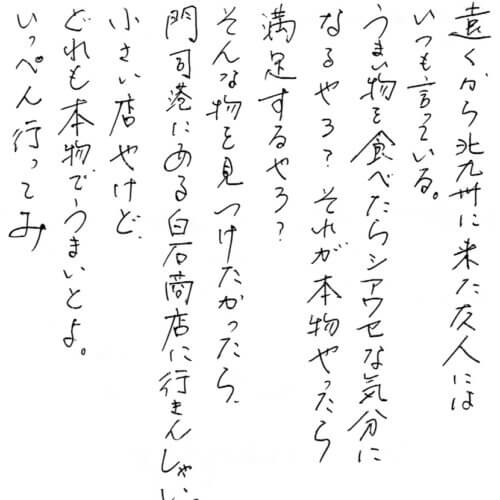 遠くから北九州に来た友人には
いつも言っている。
うまい物を食べたらシアワセな気分に
なるやろ？それが本物やったら
満足するやろ？
そんな物を見つけたかったら、
門司港にある白石商店に行きんしゃい。
小さい店やけど、
どれも本物でうまいとよ。
いっぺん行ってみ